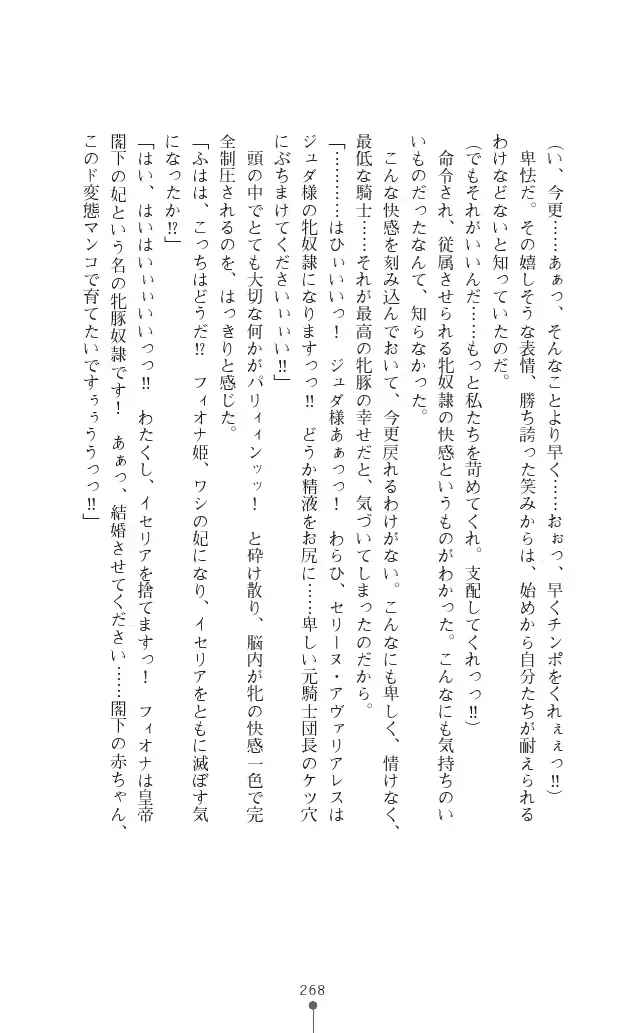 (い、今更……あぁっ、そんなことより早く……おぉっ、早くチンポをくれぇぇっ‼)
卑怯だ。その嬉しそうな表情、勝ち誇った笑みからは、始めから自分たちが耐えられる
わけなどないと知っていたのだ。
(でもそれがいいんだ……もっと私たちを苛めてくれ。支配してくれっっ‼)
命令され、従属させられる牝奴隷の快感というものがわかった。こんなにも気持ちのい
いものだったなんて、知らなかった。
こんな快感を刻み込んでおいて、今更戻れるわけがない。こんなにも卑しく、情けなく、
最低な騎士……それが最高の牝豚の幸せだと、気づいてしまったのだから。
「…………はひぃいいっ！　ジュダ様あぁっっ！　わらひ、セリーヌ・アヴァリアレスは
ジュダ様の牝奴隷になりますっっ‼　どうか精液をお尻に……卑しい元騎士団長のケツ穴
にぶちまけてくださいぃぃい‼」
頭の中でとても大切な何かがパリィィンッッ！　と砕け散り、脳内が牝の快感一色で完
全制圧されるのを、はっきりと感じた。
「ふはは、こっちはどうだ⁉　フィオナ姫、ワシの妃になり、イセリアをともに滅ぼす気
になったか⁉」
「はい、はいはいぃぃいいっっ‼　わたくし、イセリアを捨てますっ！　フィオナは皇帝
閣下の妃という名の牝豚奴隷です！　あぁっ、結婚させてください……閣下の赤ちゃん、
このド変態マンコで育てたいですぅぅううっっ‼」
268